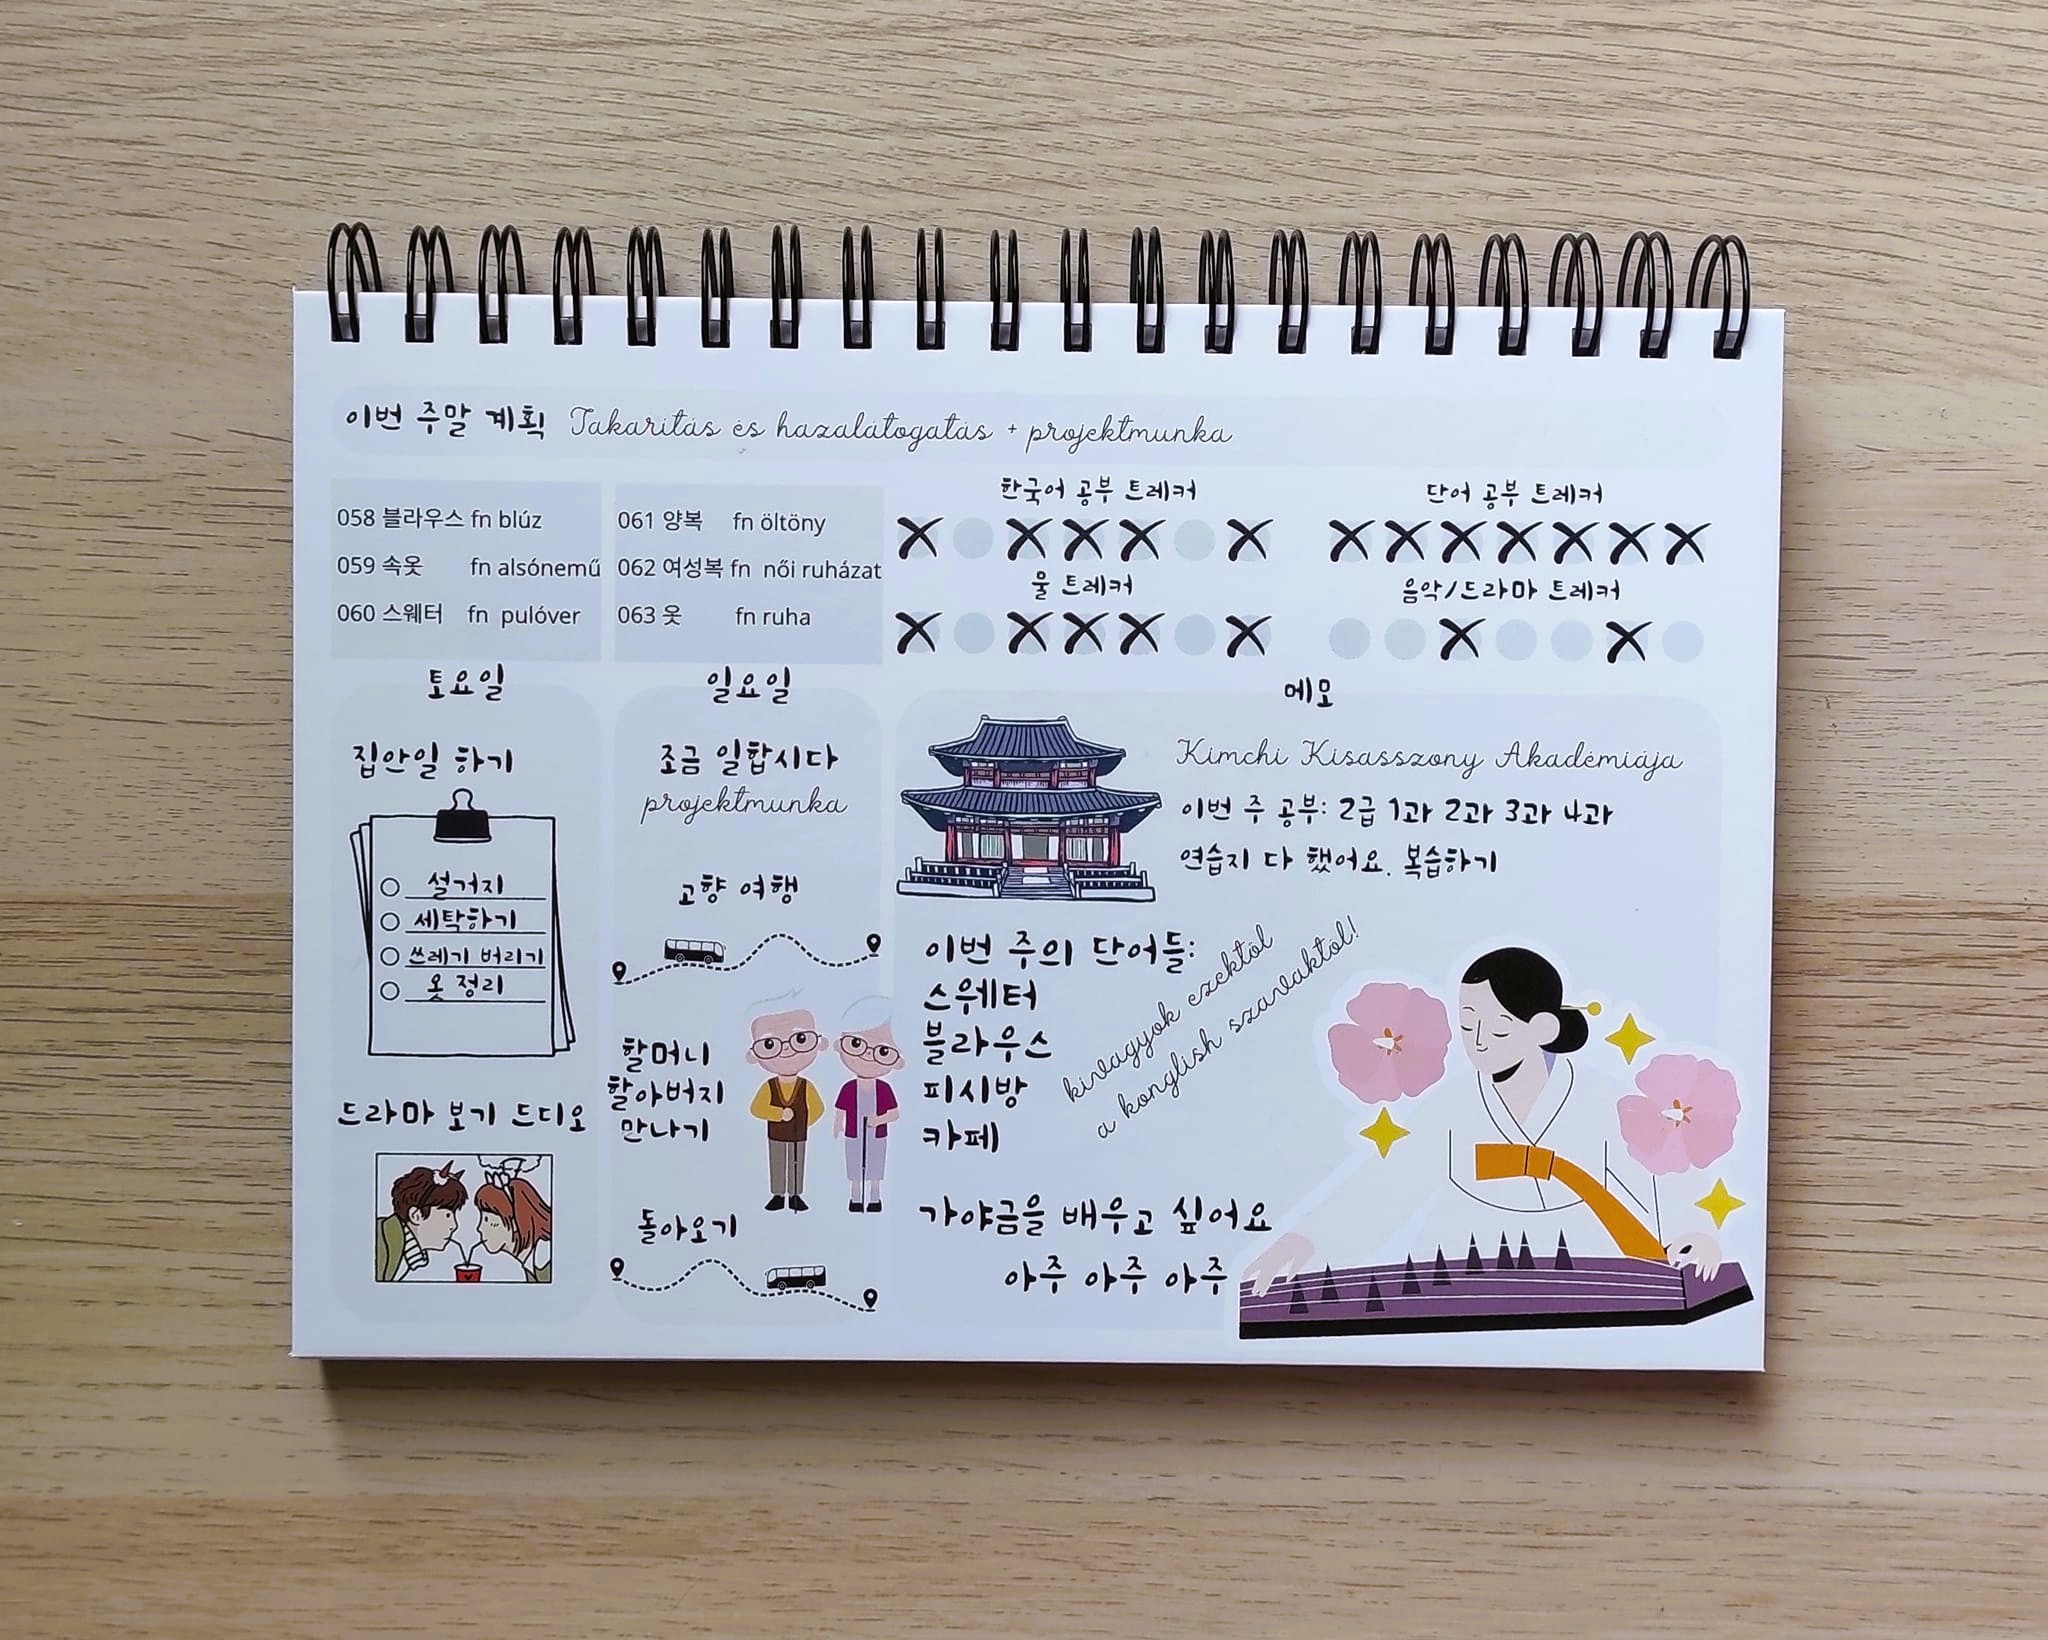 이번 주말 계획 Takarítás és hazalátogatás + projektmunka
058 블라우스 fn blúz
059 속옷 fn alsónemű
060 스웨터 fn pulóver
061 양복 fn öltöny
062 여성복 fn női ruházat
063 옷 fn ruha
한국어 공부 트레커
단어 공부 트레커
물 트레커
음악/드라마 트레커
토요일
집안일 하기
설거지
세탁하기
쓰레기 버리기
옷 정리
드라마 보기 드디오
일요일
조금 일합시다
projektmunka
고향 여행
할머니
할아버지
만나기
돌아오기
메모
Kimchi Kisasszony Akadémiája
이번 주 공부: 2급 1과 2과 3과 4과
연습지 다 했어요. 복습하기
이번 주의 단어들:
스웨터
블라우스
피시방
카페
kivagyok ezektől
a konglish szavaktól!
가야금을 배우고 싶어요
아주 아주 아주